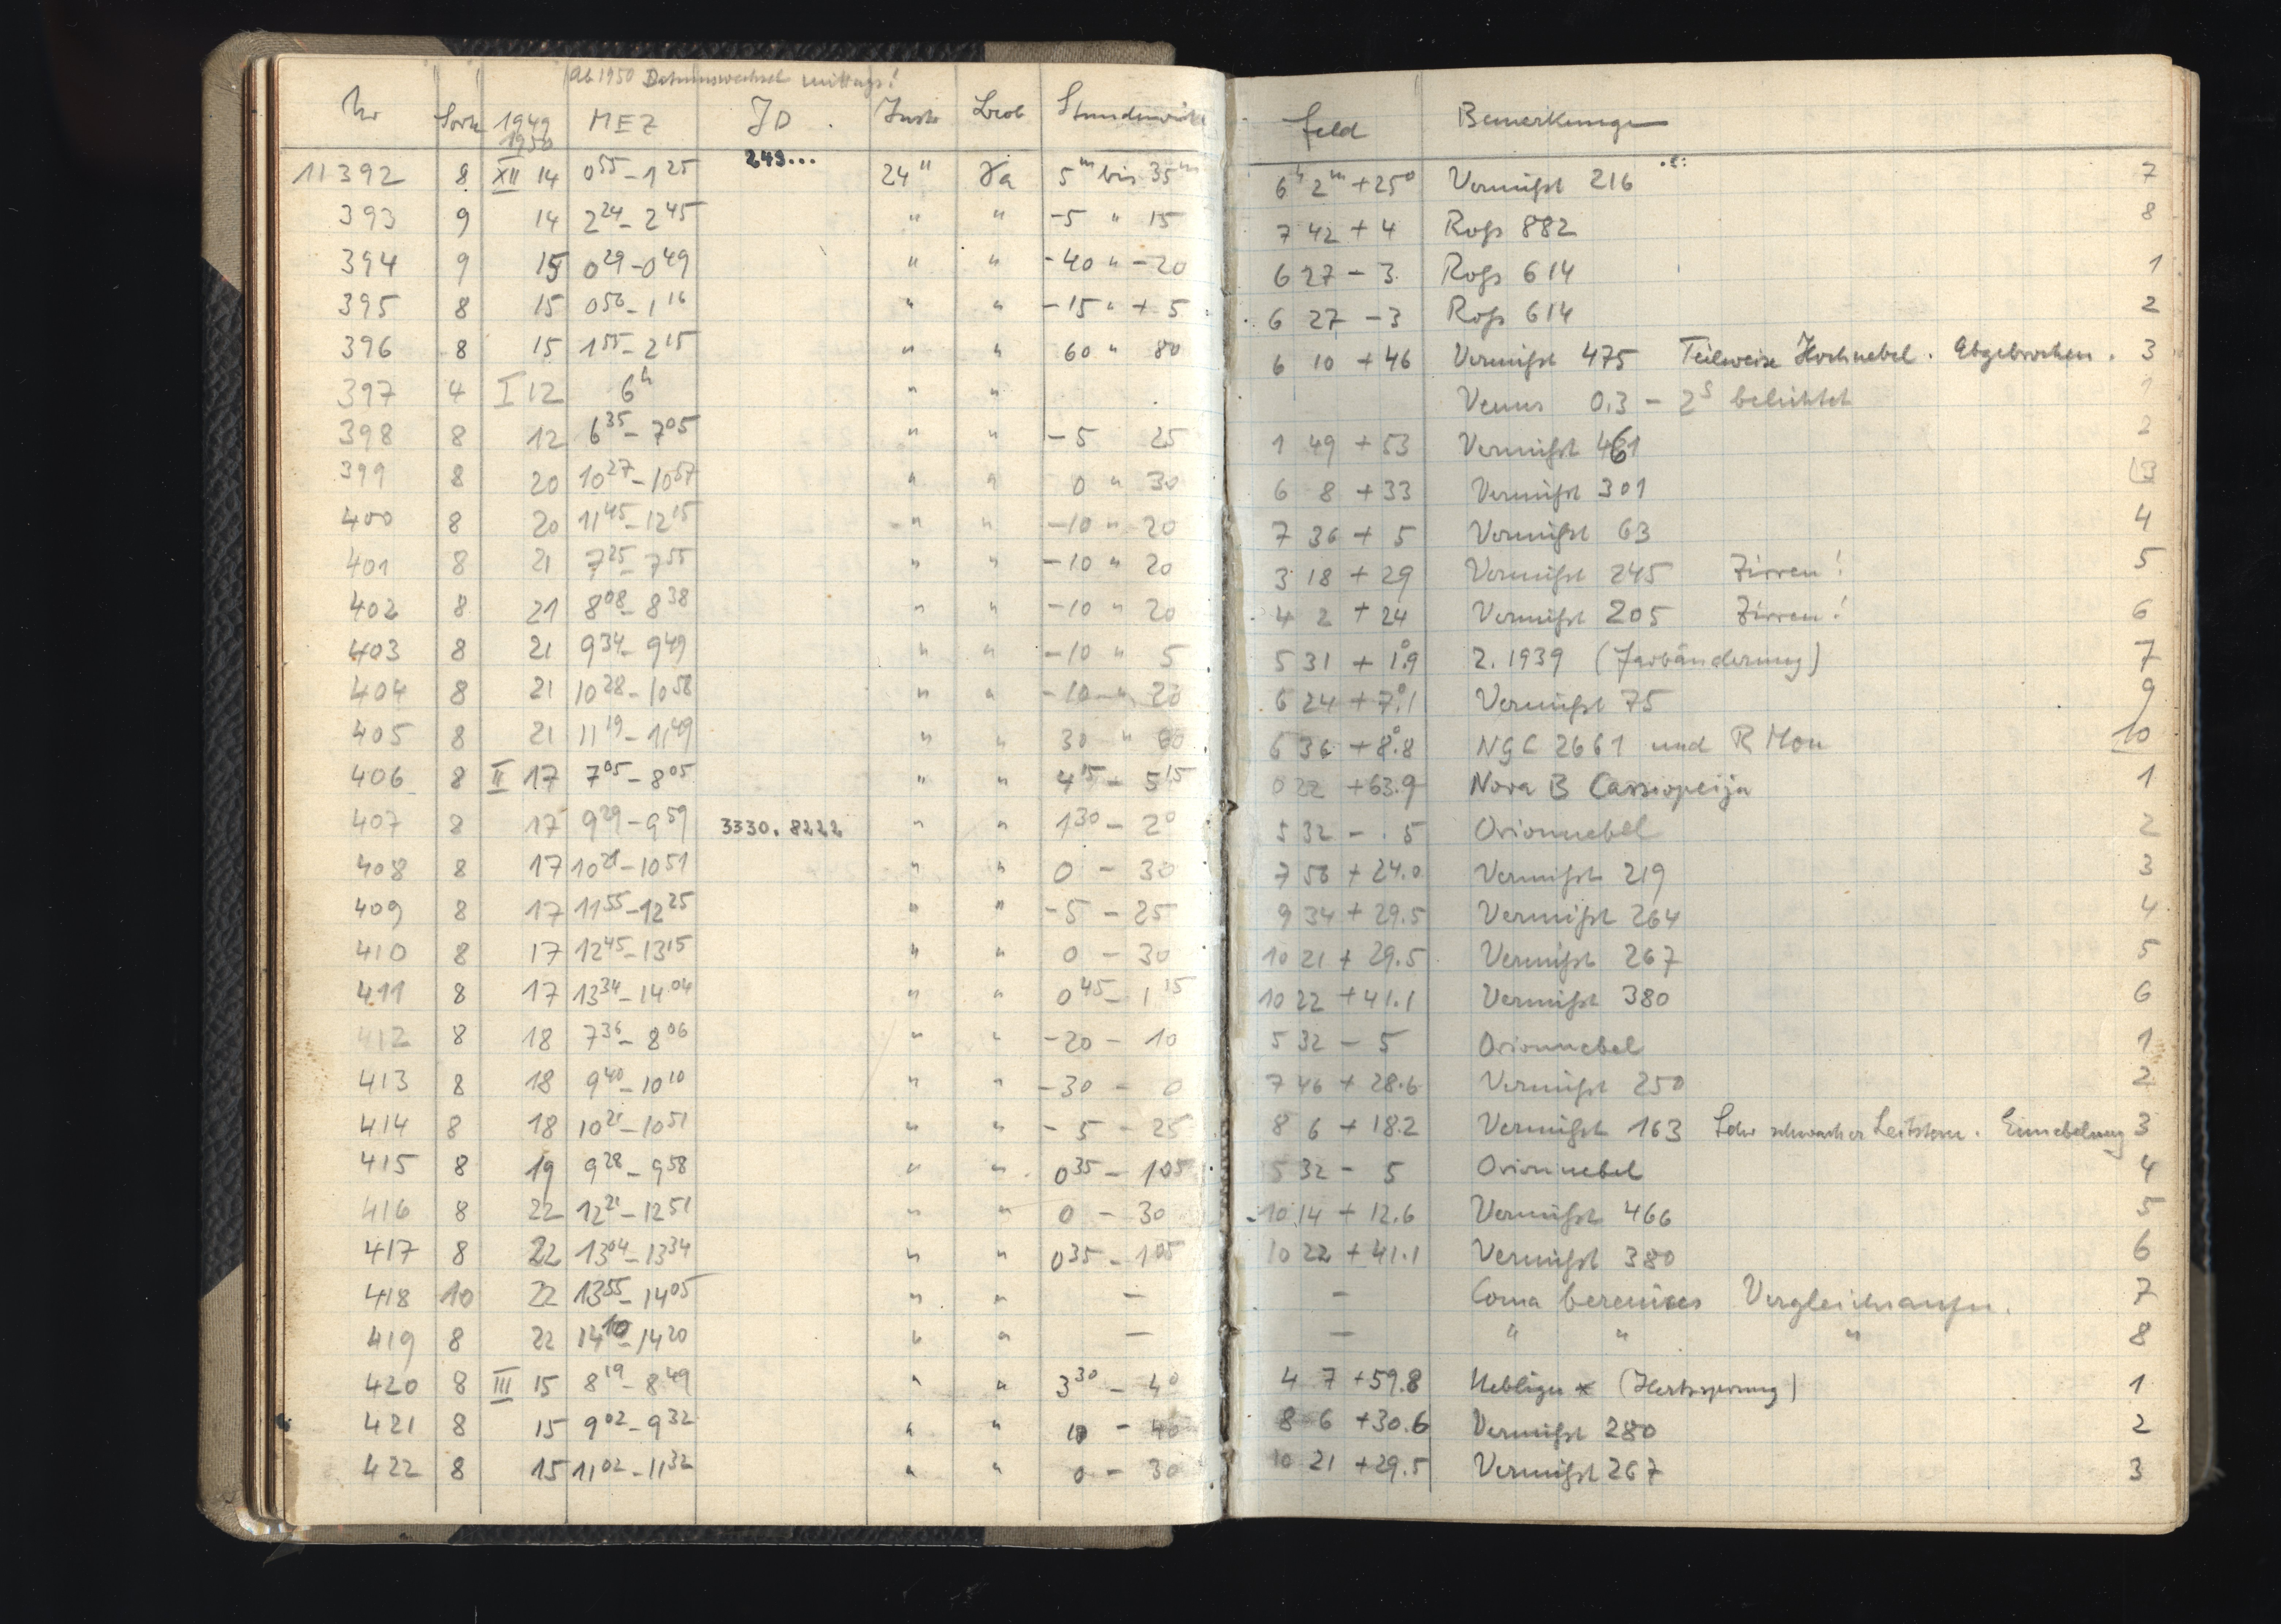 Ab 1950 Datumswechsel mittags!
Nr Sorte 1949 1950 MEZ JD Instr Beob Stundenwinkel Feld Bemerkungen
243...
11392 8 XII 14 0 55 - 1 25 24" Ja 5 m bis 35 m 6 h 2 m +25° Vermißt 216 7
393 9 14 2 24 - 2 45 " " -5 " 15 7 42 + 4 Roß 882 8
394 9 15 0 29 - 0 49 " " -40 " -20 6 27 - 3 Roß 614 1
395 8 15 0 56 - 1 16 " " -15 " + 5 6 27 - 3 Roß 614 2
396 8 15 1 55 - 2 15 " " 60 " 80 6 10 + 46 Vermißt 475 Teilweise Hochnebel. Abgebrochen. 3
397 4 I 12 6 h " " Venus 0.3 - 2 s belichtet 1
398 8 12 6 35 - 7 05 " " -5 25 1 49 + 53 Vermißt 461 2
399 8 20 10 27 - 10 57 " " 0 " 30 6 8 + 33 Vermißt 301 3
400 8 20 11 45 - 12 15 " " -10 " 20 7 36 + 5 Vermißt 63 4
401 8 21 7 25 - 7 55 " " -10 " 20 3 18 + 29 Vermißt 245 Zirren! 5
402 8 21 8 08 - 8 38 " " -10 " 20 4 2 + 24 Vermißt 205 Zirren! 6
403 8 21 9 34 - 9 49 " " -10 " 5 5 31 + 1°.9 2.1939 (Farbänderung) 7
404 8 21 10 28 - 10 58 " " -10 " 20 6 24 + 7°.1 Vermißt 75 9
405 8 21 11 19 - 11 49 " " 30 " 60 6 36 + 8°.8 NGC 2661 und R Mon 10
406 8 II 17 7 05 - 8 05 " " 4 15 - 5 15 0 22 +63.9 Nova B Cassiopeija 1
407 8 17 9 29 - 9 59 3330.8222 " " 1 30 - 2 0 5 32 - 5 Orionnebel 2
408 8 17 10 21 - 10 51 " " 0 - 30 7 58 + 24.0 Vermißt 219 3
409 8 17 11 55 - 12 25 " " -5 - 25 9 34 + 29.5 Vermißt 264 4
410 8 17 12 45 - 13 15 " " 0 - 30 10 21 + 29.5 Vermißt 267 5
411 8 17 13 34 - 14 04 " " 0 45 - 1 15 10 22 + 41.1 Vermißt 380 6
412 8 18 7 36 - 8 06 " " -20 - 10 5 32 - 5 Orionnebel 1
413 8 18 9 40 - 10 10 " " -30 - 0 7 46 + 28.6 Vermißt 250 2
414 8 18 10 21 - 10 51 " " - 5 - 25 8 6 + 18.2 Vermißt 163 Sehr schwacher Leitstern. Einnebelung 3
415 8 19 9 28 - 9 58 " " 0 35 - 1 05 5 32 - 5 Orionnebel 4
416 8 22 12 21 - 12 51 " " 0 - 30 10 14 + 12.6 Vermißt 466 5
417 8 22 13 04 - 13 34 " " 0 35 - 1 05 10 22 + 41.1 Vermißt 380 6
418 10 22 13 55 - 14 05 " " — — Coma berenices Vergleichsaufn. 7
419 8 22 14 10 - 14 20 " " — — " " " 8
420 8 III 15 8 19 - 8 49 " " 3 30 - 4 0 4 7 +59.8 Nebliger * (Hertzsprung) 1
421 8 15 9 02 - 9 32 " " 10 - 40 8 6 +30.6 Vermißt 280 2
422 8 15 11 02 - 11 32 " " 0 - 30 10 21 +29.5 Vermißt 267 3